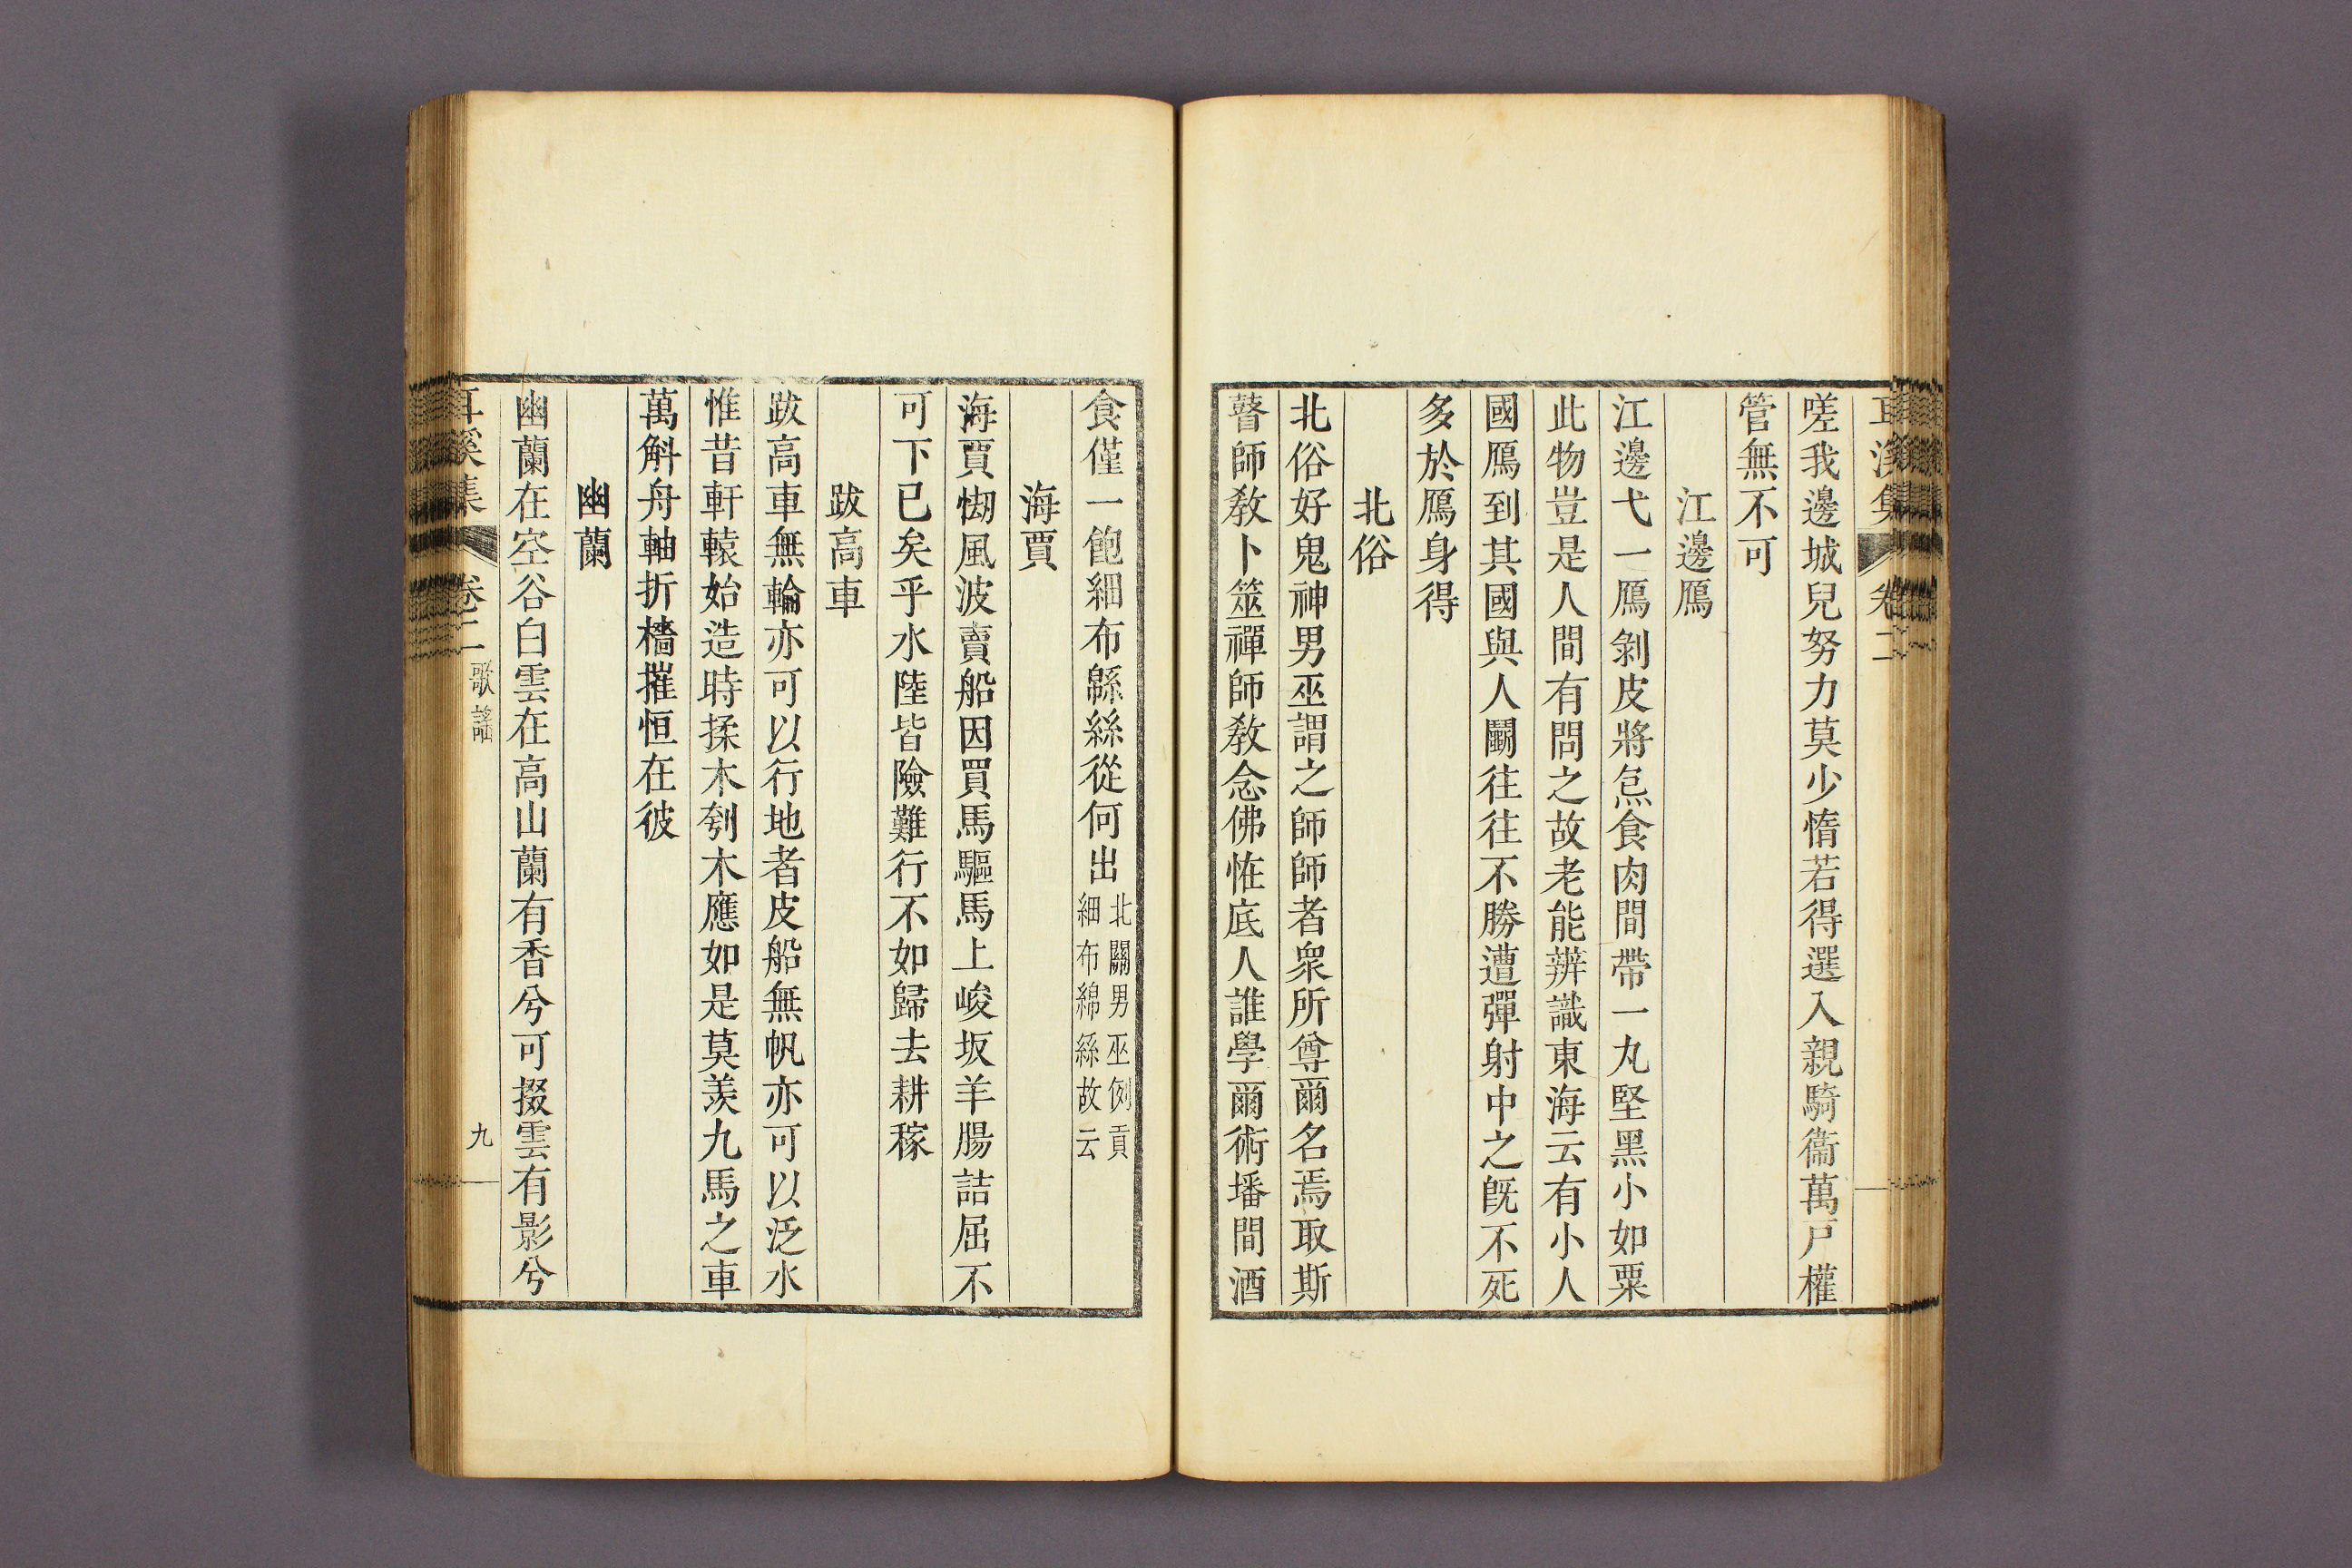 耳溪集 卷二
嗟我邊城兒努力莫少惰若得選入親騎衞萬戸權
管無不可
江邊鴈
江邊弋一鴈剝皮將炰食肉間帶一丸堅黑小如粟
此物豈是人間有問之故老能辨識東海云有小人
國鴈到其國與人鬭往往不勝遭彈射中之旣不死
多於鴈身得
北俗
北俗好鬼神男巫謂之師師者衆所尊爾名焉取斯
瞽師敎卜筮禪師敎念佛恠底人誰學爾術墦間酒
食僅一飽細布緜絲從何出
北關男巫例貢
細布綿絲故云
海賈
海賈慟風波賣船因買馬驅馬上峻坂羊腸詰屈不
可下已矣乎水陸皆險難行不如歸去耕稼
跋高車
跋高車無輪亦可以行地者皮船無帆亦可以泛水
惟昔軒轅始造時揉木刳木應如是莫羨九馬之車
萬斛舟軸折檣摧恒在彼
幽蘭
幽蘭在空谷白雲在高山蘭有香兮可掇雲有影兮
耳溪集 卷二 歌謠 九